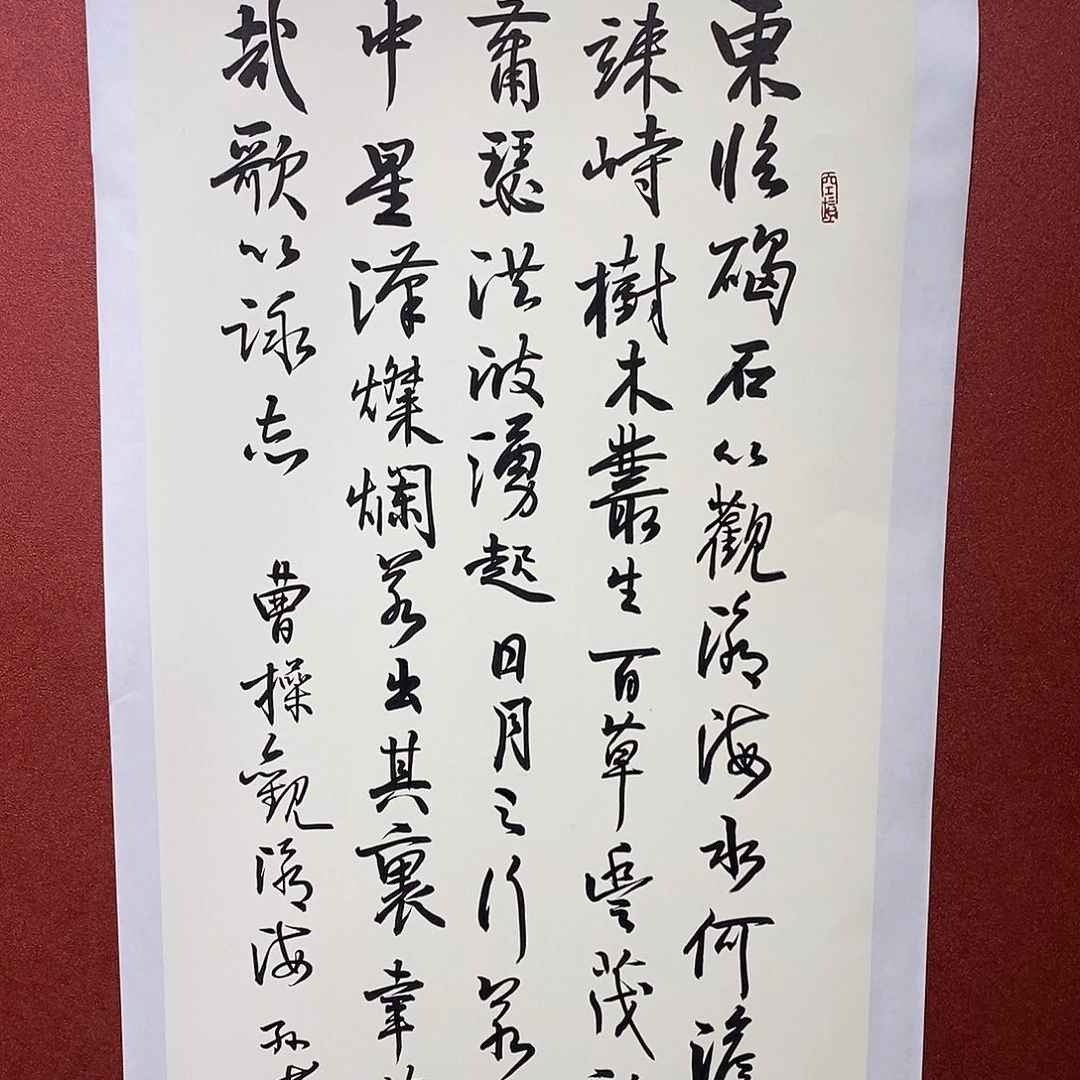 東临碣石以觀滄海水何澹
竦峙樹木叢生百草豊茂
蕭瑟洪波湧起日月之行若
中星漢燦爛若出其裏幸
哉歌以詠志
曹操觀滄海 孙